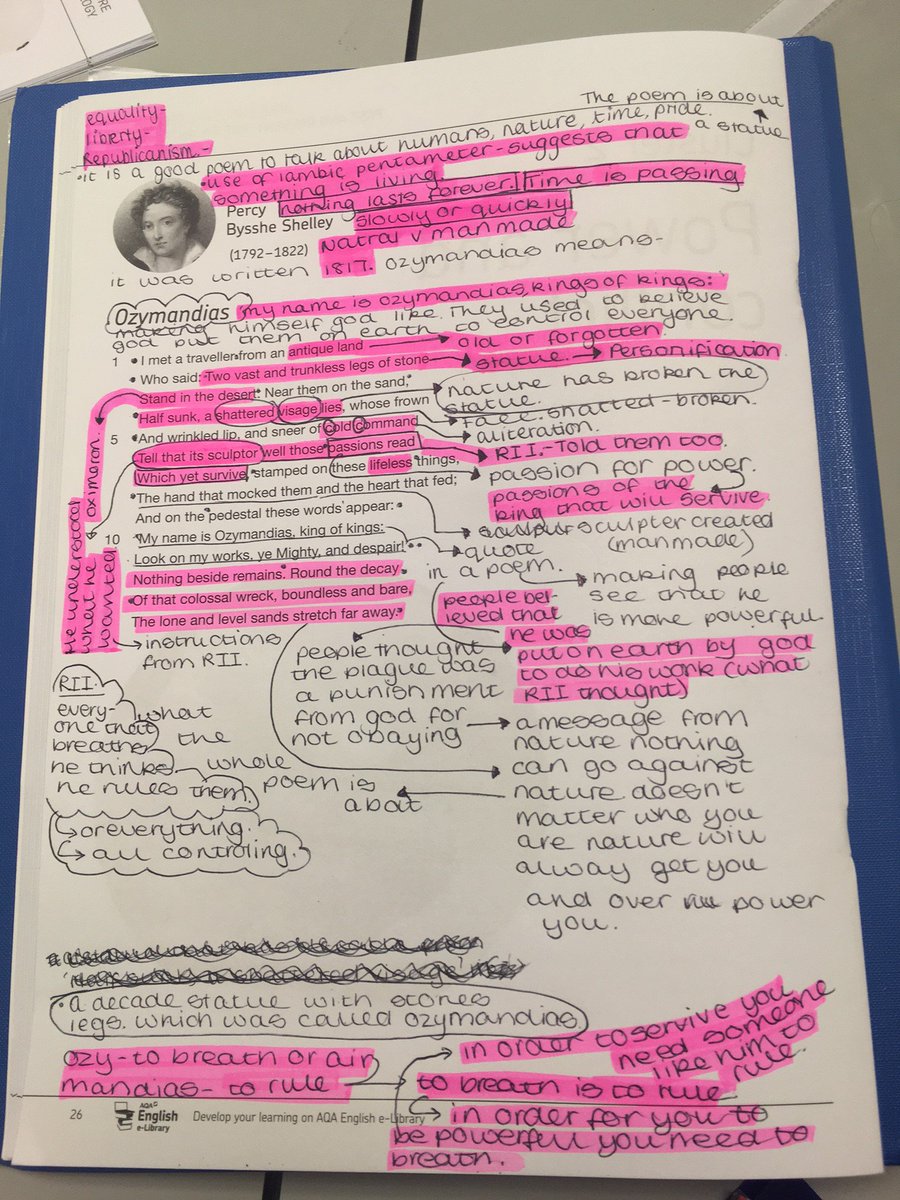 RE
OLOGY
equality-
liberty-
Republicanism.-
The poem is about
a statue
• it is a good poem to talk about humans, nature, time, pride.
• use of iambic pentameter - suggests that
something is living
nothing lasts forever. Time is passing
slowly or quickly
Natral v manmade
Percy
Bysshe Shelley
(1792–1822)
it was written 1817. Ozymandias means-
Ozymandias
my name is ozymandias, kings of kings:
making himself god like. They used to believe
god put them on earth to control everyone.
1 • I met a traveller from an antique land
old or forgotten
• Who said: 'Two vast and trunkless legs of stone
statue. → Personification
Stand in the desert. Near them on the sand,
nature has broken the
statue.
Half sunk, a shattered visage lies, whose frown
face. shatted - broken.
5 And wrinkled lip, and sneer of cold command
aliteration.
Tell that its sculptor well those passions read
RII. - Told them too.
Which yet survive, stamped on these lifeless things,
passion for power.
passions of the
king that will servive
The hand that mocked them and the heart that fed;
sculptur sculpter created
(manmade)
And on the pedestal these words appear:
10 "My name is Ozymandias, king of kings:
quote
in a poem.
Look on my works, ye Mighty, and despair!"
making people
see that he
is more powerful
Nothing beside remains. Round the decay
Of that colossal wreck, boundless and bare,
The lone and level sands stretch far away.'
oximeron.
He understood
what he
wanted
instructions
from RII.
people bel-
ieved that
he was
put on earth by god
to do his work (what
RII thought)
people thought
the plague was
a punishment
from god for
not obaying
a message from
nature nothing
can go against
nature doesn't
matter who you
are nature will
alway get you
and over power
you.
RII.
every-
one that
breathes
he thinks
he rules them.
or everything.
all controling.
what
the
whole
poem is
about
• a decade statue with stones
legs. which was called ozymandias
ozy - to breath or air
mandias - to rule
in order to servive you
need someone
like him to
rule.
to breath is to rule
in order for you to
be powerful you need to
breath.
26
AQA
English
e-Library
Develop your learning on AQA English e-Library